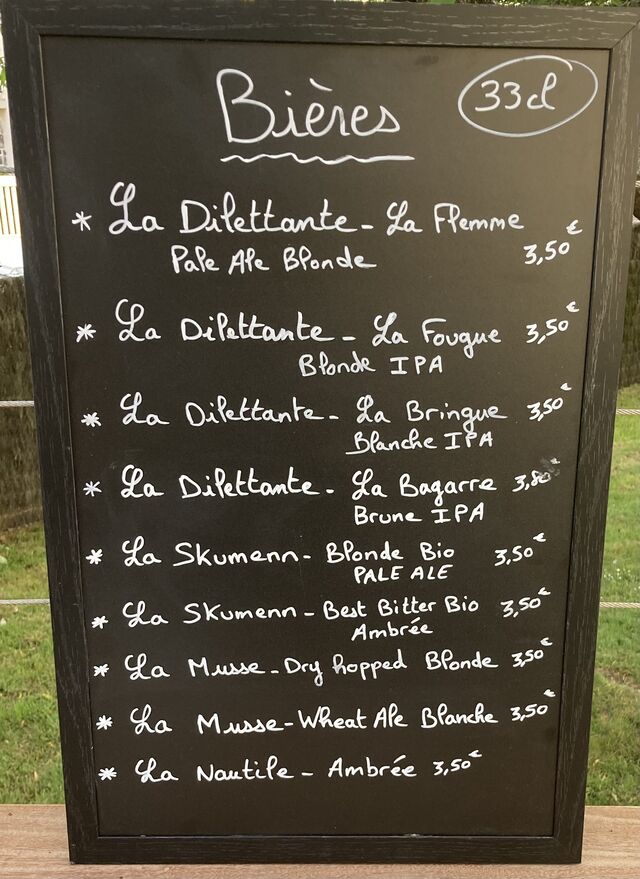 Bières 33cl
* La Dilettante - La Flemme
Pale Ale Blonde 3,50€
* La Dilettante - La Fougue 3,50€
Blonde IPA
* La Dilettante - La Bringue 3,50€
Blanche IPA
* La Dilettante - La Bagarre 3,80€
Brune IPA
* La Skumenn - Blonde Bio 3,50€
PALE ALE
* La Skumenn - Best Bitter Bio 3,50€
Ambrée
* La Musse - Dry hopped Blonde 3,50€
* La Musse - Wheat Ale Blanche 3,50€
* La Nautile - Ambrée 3,50€